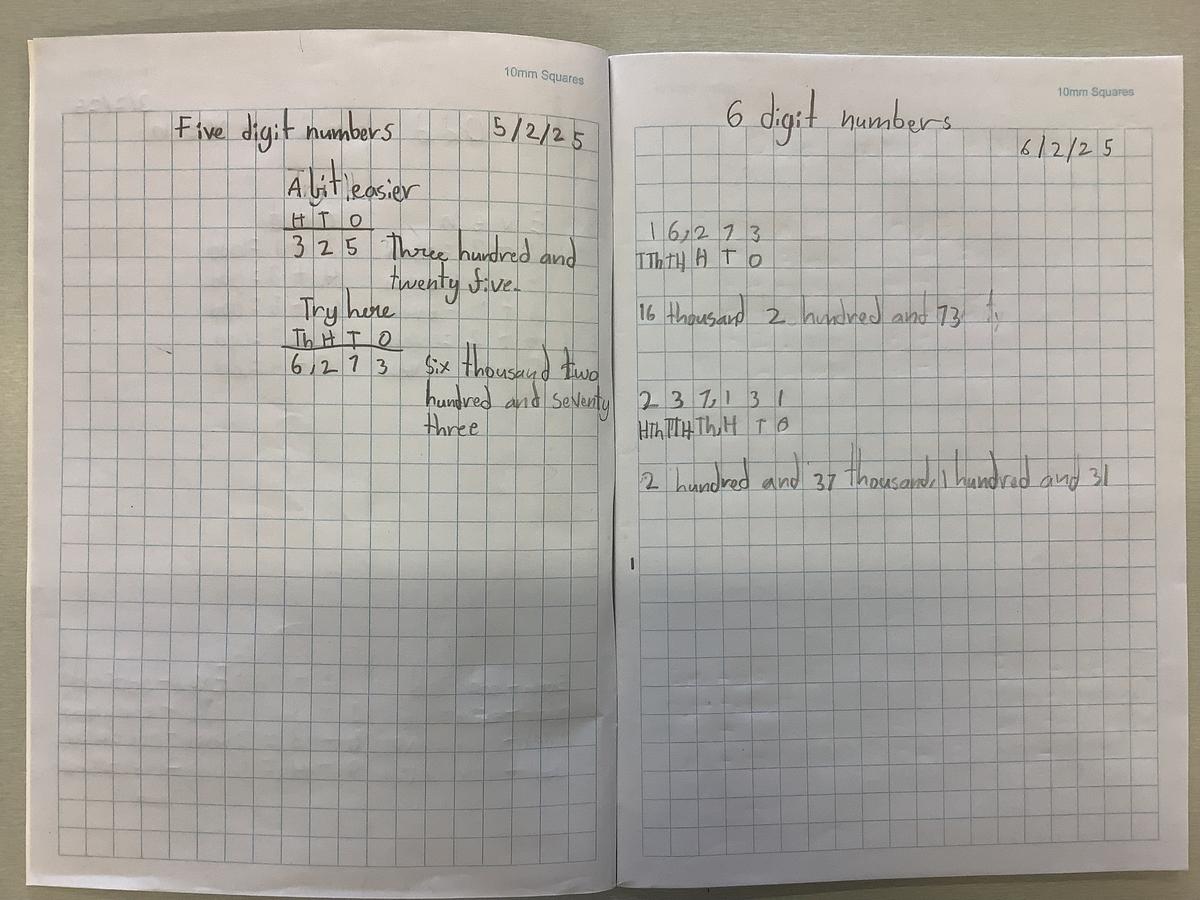 10mm Squares
Five digit numbers 5/2/25
A bit easier
H T O
3 2 5 Three hundred and
twenty five.
Try here
Th H T O
6,2 7 3 Six thousand two
hundred and seventy
three
10mm Squares
6 digit numbers
6/2/25
1 6,2 7 3
TTh TH H T O
16 thousand 2 hundred and 73
2 3 7,1 3 1
HTh TTH Th,H T O
2 hundred and 37 thousand, 1 hundred and 31